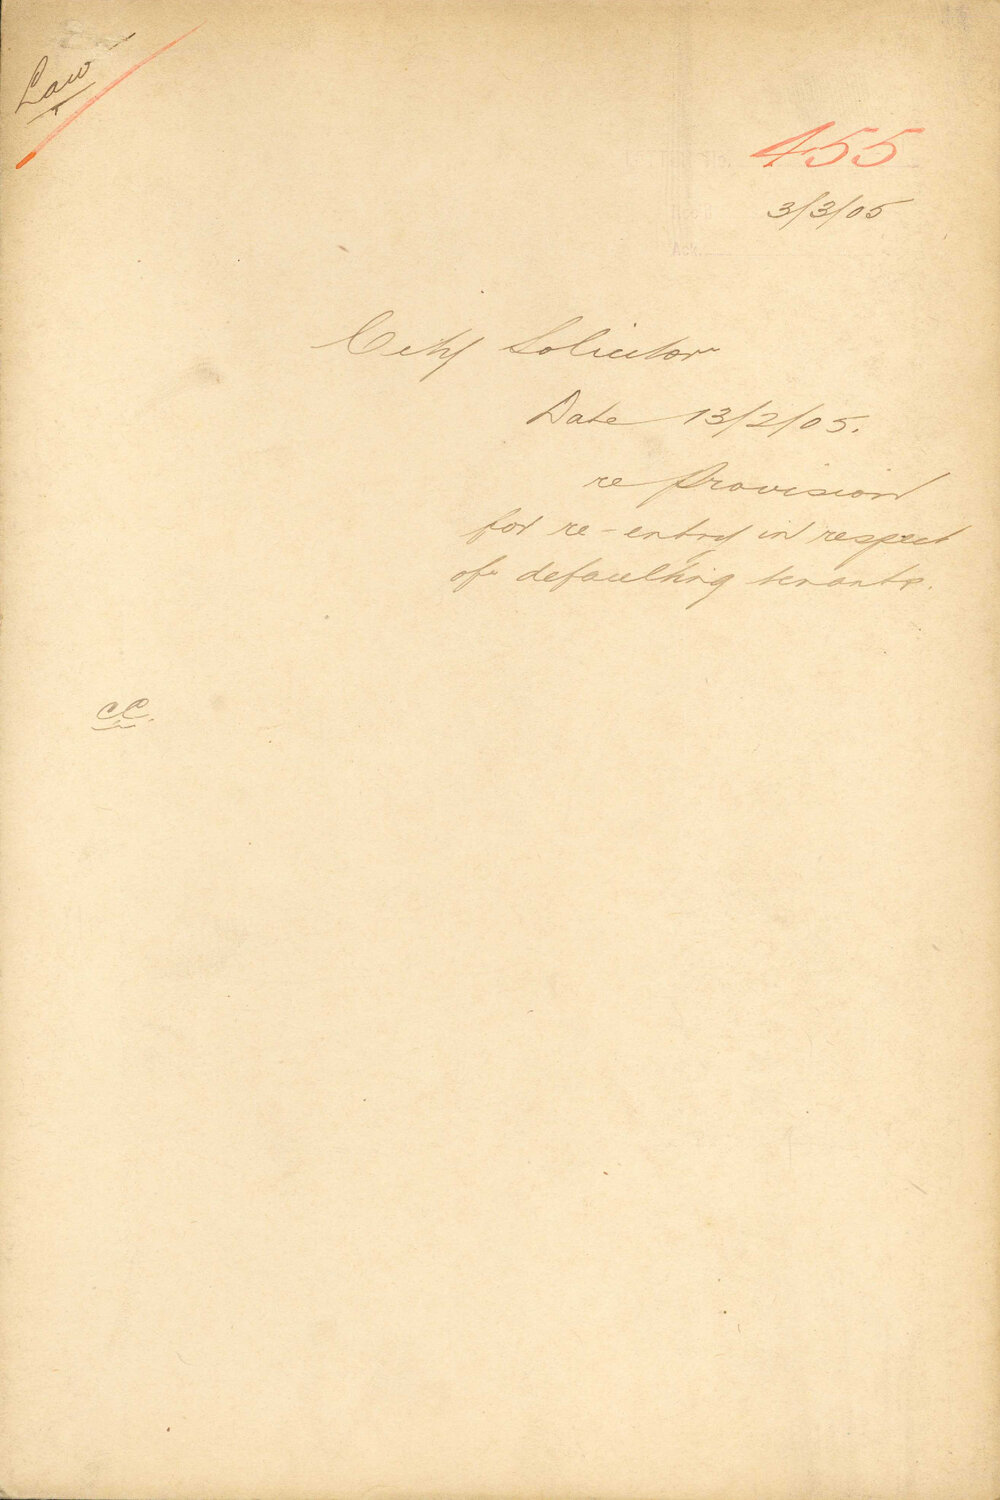 Law
455
3/3/05
City Solicitor
Date 13/2/05.
re Provision
for re-entry in respect
of defaulting tenants.
CC.